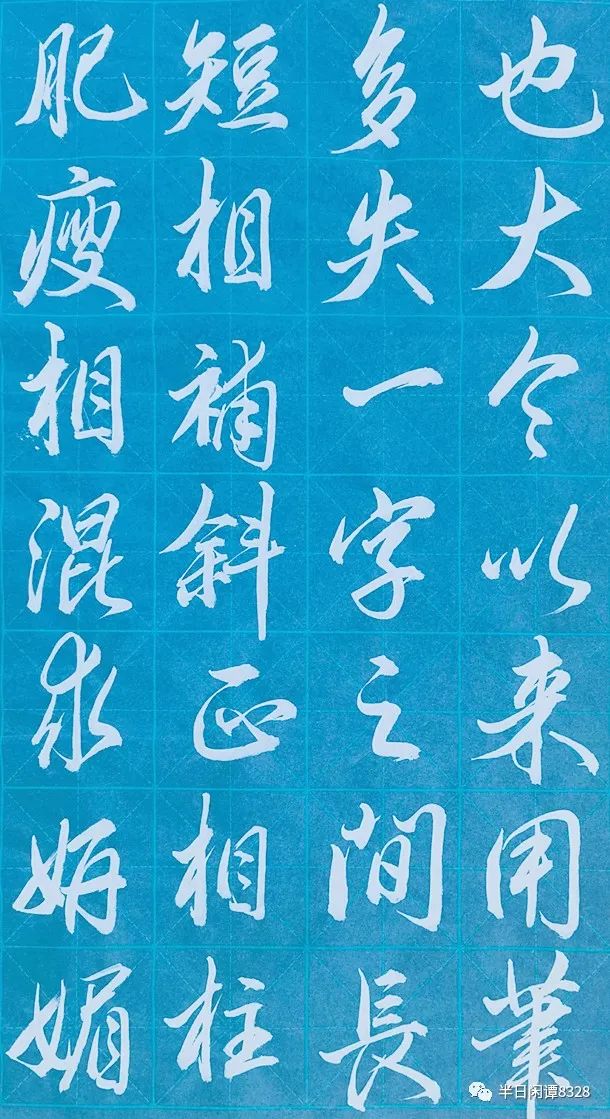 也大令以来用筆
多失一字之間長
短相補斜正相柱
肥瘦相混求妍媚
半日闲谭8328